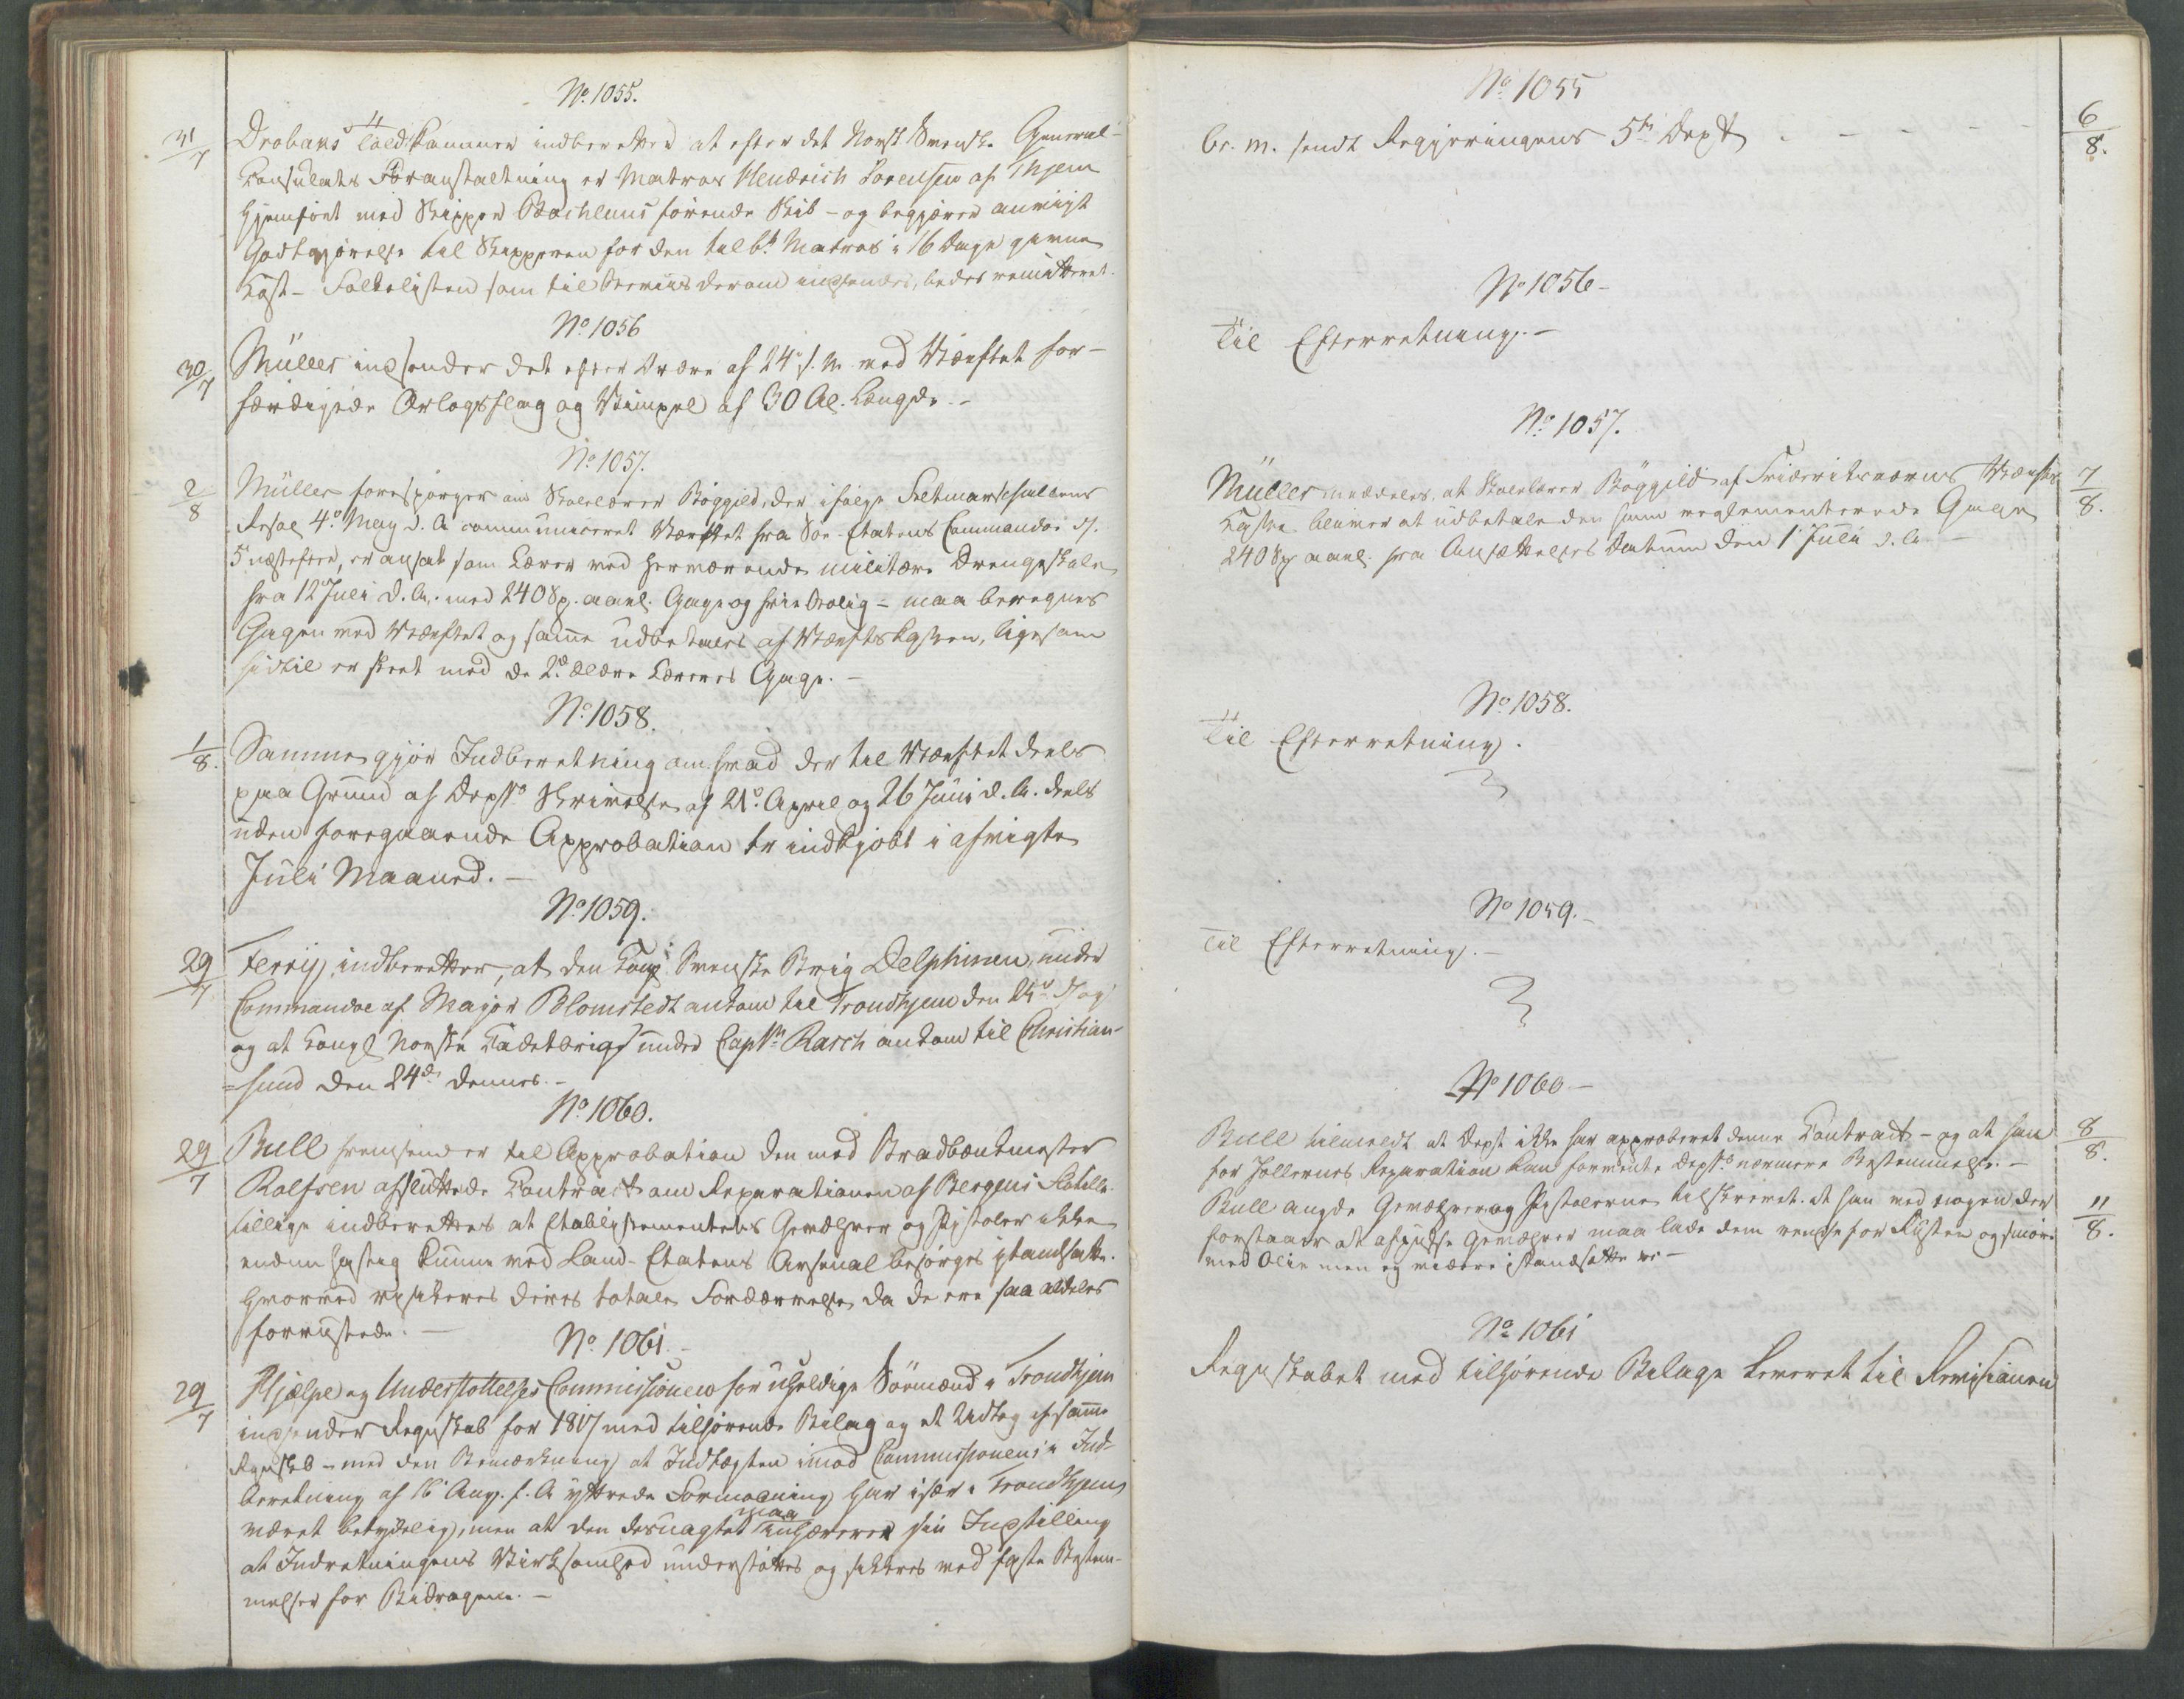 No 1055.
31/7 Drøbaks Toldkammer indberetter at efter det Norsk Svenske General-
Consulats Foranstaltning er Matros Hendrich Sørensen af
hjemført med Skipper Bachlunds førende Skib - og begjærer anviist
Godtgjørelse til Skipperen for den Matros i 16 Dage givne
Kost - Folkelisten som til Beviis derom indsendes, bedes remitteret.
No 1056
30/7 Müller indsender det efter Ordre af 24 f. M. ved Værftet for-
færdigede Orlogsflag og Vimpel af 30 Al. Længde. -
No 1057.
2/8 Müller forespørger om Skolelærer Bøggild, der ifølge Feltmarschallens
Resol 4o May d. A. communiceret Værftet fra Søe-Etatens Commando
5 næstefter, er ansat som Lærer ved herværende militære Drengeskole
fra 1ste Juli d. A. med 240 Sp. aarl. Gage og frie Bolig - maa beregnes
Gagen ved Værftet og samme udbetales af Værfts Cassen, ligesom
hidtil er skeet med de 2de ældre Læreres Gage. -
No 1058.
1/8. Samme gjør Indberetning om hvad der til Værftet deels
paa Grund af Depts Skrivelse af 21o April og 26 Juni d. A. deels
uden foregaaende Approbation er indkjøbt i afvigte
Juli Maaned. -
No 1059.
29/7 Ferry indberetter, at den Kongl Svenske Brig Delphinen, under
Commando af Major Blomstedt ankom til Trondhjem den 24de
og at Kongl Norske Cadetbrig under Captn Rasch ankom til Christian-
=sund den 24de dennes. -
No 1060.
29/7 Bull fremsender til Approbation den med Bradbænkmester
Rolfsen afsluttede Contract om Reparationen af Bergens Flotille
tillige indberettes at Etablissementets Geværer og Pistoler ikke
endnu hastig kunne ved Land-Etatens Arsenal besørges istandsatte.
hvorved risikeres deres totale Fordærvelse, da de ere saa aldeles
forrustede. -
No 1061. -
29/7 Hjælpe og Understøttelses Commissionen for uheldige Sømænd i Trondhjem
indsender Regnskab for 1817 med tilhørende Bilag og et Udtog af samme
Regnskab - med den Bemærkning at Indtægten imod Commissionens i Ind-
beretning af 16 Aug. f. A. yttrede Formodning har især i Trondhjem
været betydelig, men at den desuagtet maa sin Indstilling
at Indretningens Virksomhed understøttes og sikkres ved faste Bestem-
melser for Bidragene. -
No 1055
br. m. sendt Regjeringens 5te Dept - - - - 6/8.
No 1056 -
Til Efterretning. -
No 1057.
Müller meddeles, at Skolelærer Bøggild af Frideriksværns Værfts 7/8.
Casse bliver at udbetale den ham reglementerede Gage
240 Sp aarl. fra Ansættelses Datum den 1 Juli d. A. -
No 1058.
Til Efterretning.
No 1059. -
Til Efterretning. -
No 1060 -
Bull tilmeldt at Dept ikke har approberet denne Contract - og at han 8/8.
for Jollernes Reparation kan forvente Depts nærmere Bestemmelse. -
Bull angde Geværer og Pistolerne tilskrevet at han ved nogen der 11/8.
forstaaer at afpudse Geværer maa lade dem rense for Rusten og smøre
med Olie men ej videre istandsætte
No 1061
Regnskabet med tilhørende Bilage leveret til Revisionen